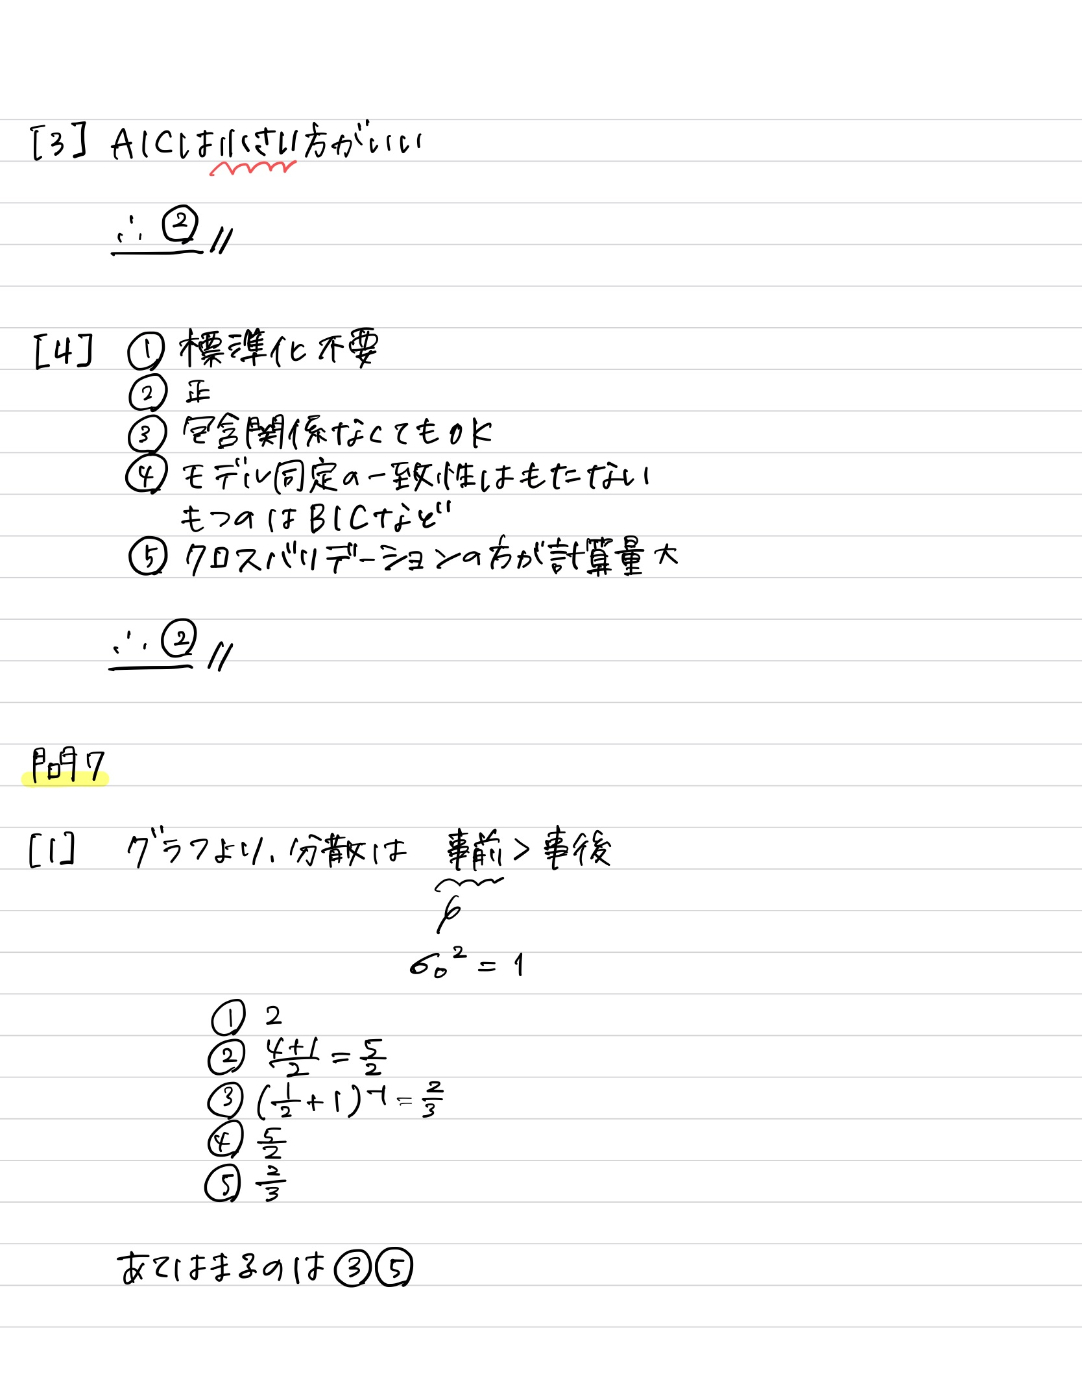 [3] AICは小さい方がいい
∴ ② //
[4] ① 標準化不要
② 正
③ 包含関係なくてもOK
④ モデル同定の一致性はもたない
もつのはBICなど
⑤ クロスバリデーションの方が計算量大
∴ ② //
問7
[1] グラフより、分散は 事前 > 事後
σ₀² = 1
① 2
② (4+1)/2 = 5/2
③ (1/2 + 1)⁻¹ = 2/3
④ 5/2
⑤ 2/3
あてはまるのは ③⑤